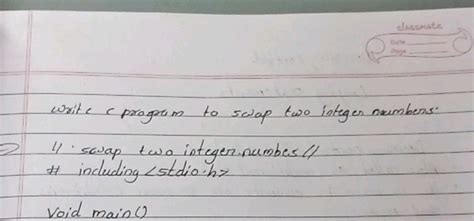 classmate
Date
Page
write c program to swap two integer numbers.
// swap two integer numbes //
# including <stdio.h>
void main()